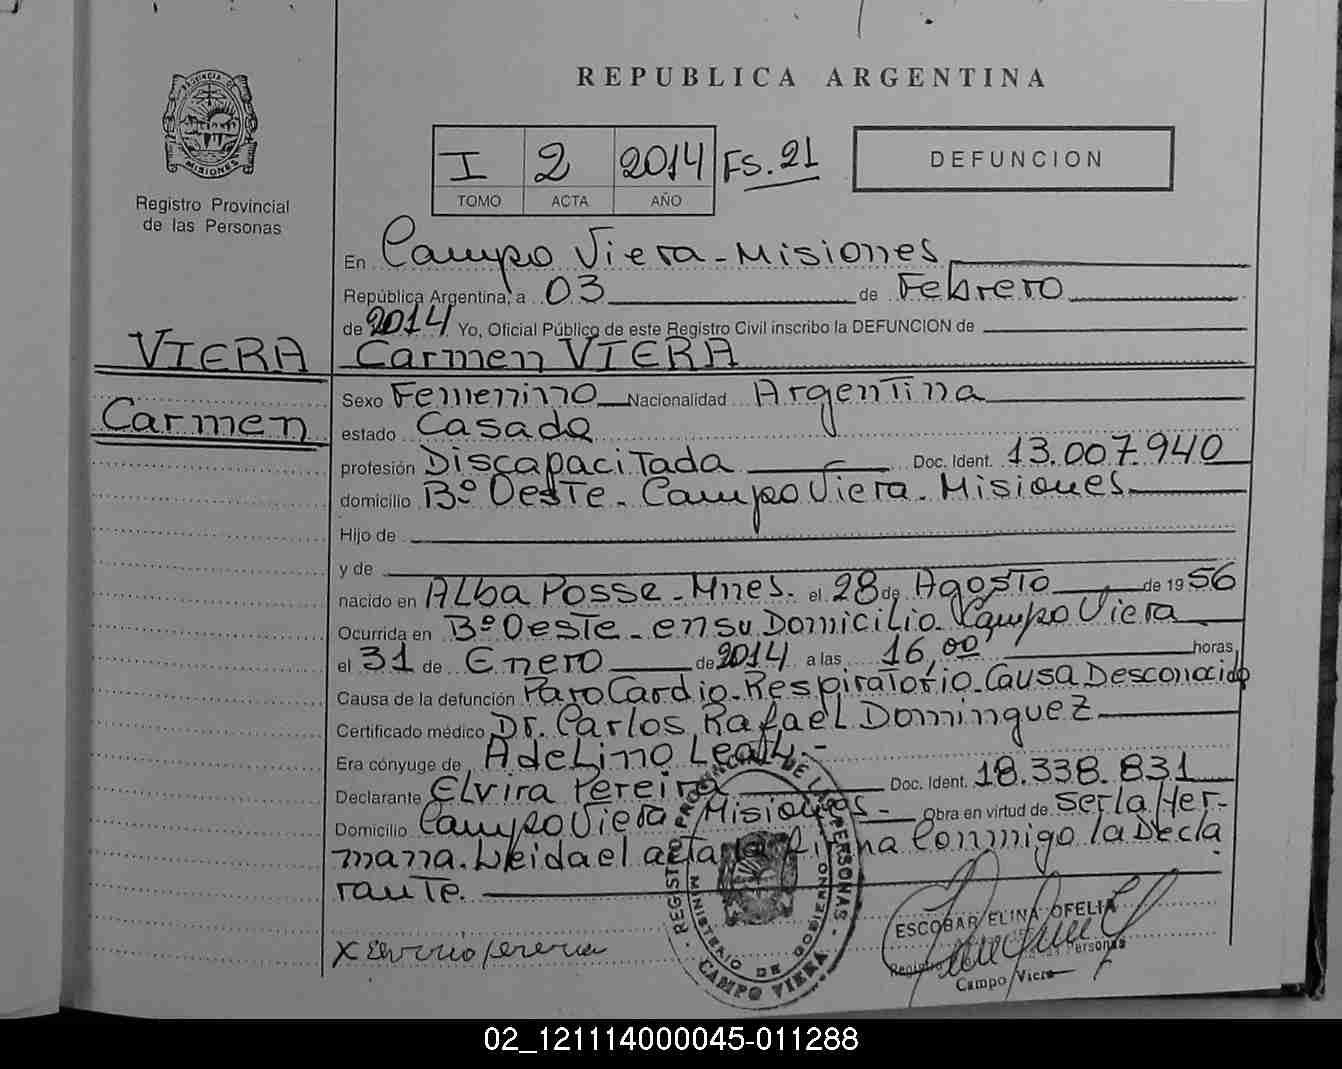 REPUBLICA ARGENTINA
PROVINCIA DE
MISIONES
Registro Provincial
de las Personas
I 2 2014 FS. 21
TOMO ACTA AÑO
DEFUNCION
En Campo Viera - Misiones
República Argentina, a 03 de Febrero
de 2014 Yo, Oficial Público de este Registro Civil inscribo la DEFUNCION de
VIERA Carmen VIERA
Carmen
Sexo Femenino Nacionalidad Argentina
estado Casada
profesión Discapacitada Doc. Ident. 13.007.940
domicilio Bº Oeste - Campo Viera - Misiones
Hijo de
y de
nacido en Alba Posse - Mnes. el 28 de Agosto de 1956
Ocurrida en Bº Oeste - en su Domicilio - Campo Viera
el 31 de Enero de 2014 a las 16,00 horas,
Causa de la defunción Paro Cardio - Respiratorio - Causa Desconocida
Certificado médico Dr. Carlos Rafael Dominguez
Era cónyuge de Adelino Leal
Declarante Elvira Pereira Doc. Ident. 18.338.831
Domicilio Campo Viera - Misiones - Obra en virtud de ser la Her-
mana. Leida el acta la firma Conmigo la Decla
rante.
X Elvira Pereira
REGISTRO PROVINCIAL DE LAS PERSONAS
MINISTERIO DE GOBIERNO
CAMPO VIERA
ESCOBAR ELINA OFELIA
Registro Personas
Campo Viera
02_121114000045-011288